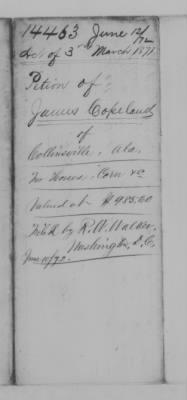 14463 June 12/72
Act of 3d March 1871.
Petion of
James Copeland
of
Collinsville, Ala.
Two Horses, Corn &c
Valued at $985.00
Filed by R. W. Walker,
Washington, D. C,
June 11/72.